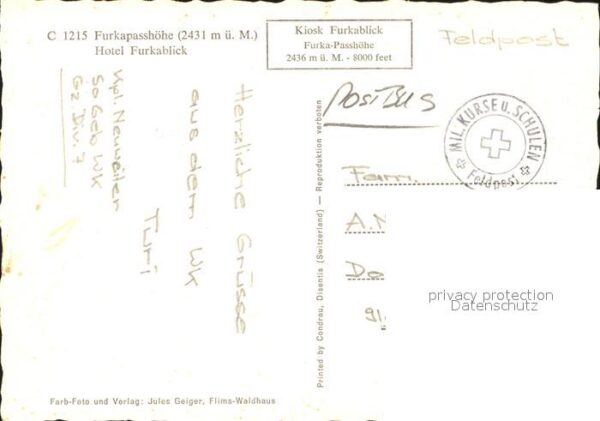 C 1215 Furkapasshöhe (2431 m ü. M.)
Hotel Furkablick
Kiosk Furkablick
Furka-Passhöhe
2436 m ü. M. - 8000 feet
Feldpost
PostBus
MIL. KURSE u. SCHULEN
Feldpost
Kpl. Neuweiler
So Geb WK
Gz. Div. 7
Herzliche Grüsse
aus dem WK
Turi
Fam.
A.
Do
91
Printed by Condrau, Disentis (Switzerland) — Reproduktion verboten
privacy protection
Datenschutz
Farb-Foto und Verlag: Jules Geiger, Flims-Waldhaus